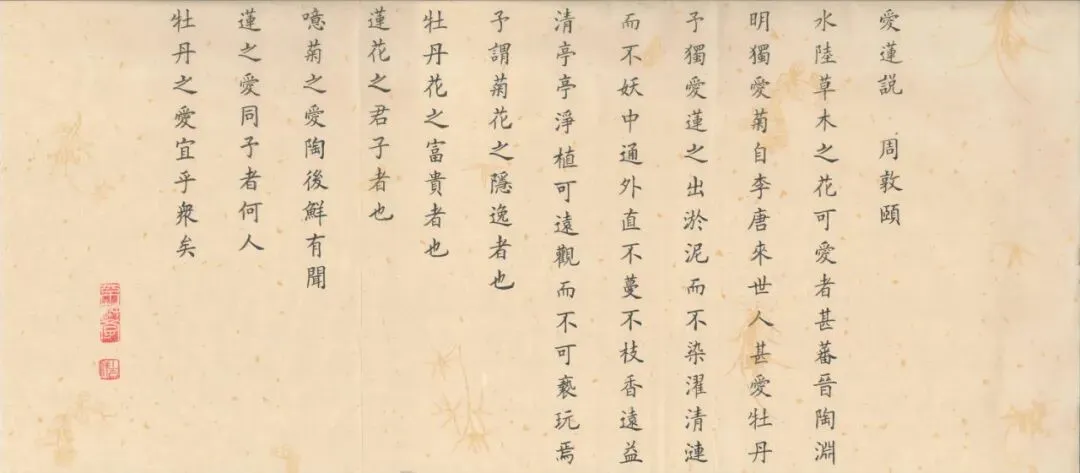 愛蓮説 周敦頤
水陸草木之花可愛者甚蕃晉陶淵
明獨愛菊自李唐來世人甚愛牡丹
予獨愛蓮之出淤泥而不染濯清漣
而不妖中通外直不蔓不枝香遠益
清亭亭淨植可遠觀而不可褻玩焉
予謂菊花之隱逸者也
牡丹花之富貴者也
蓮花之君子者也
噫菊之愛陶後鮮有聞
蓮之愛同予者何人
牡丹之愛宜乎衆矣